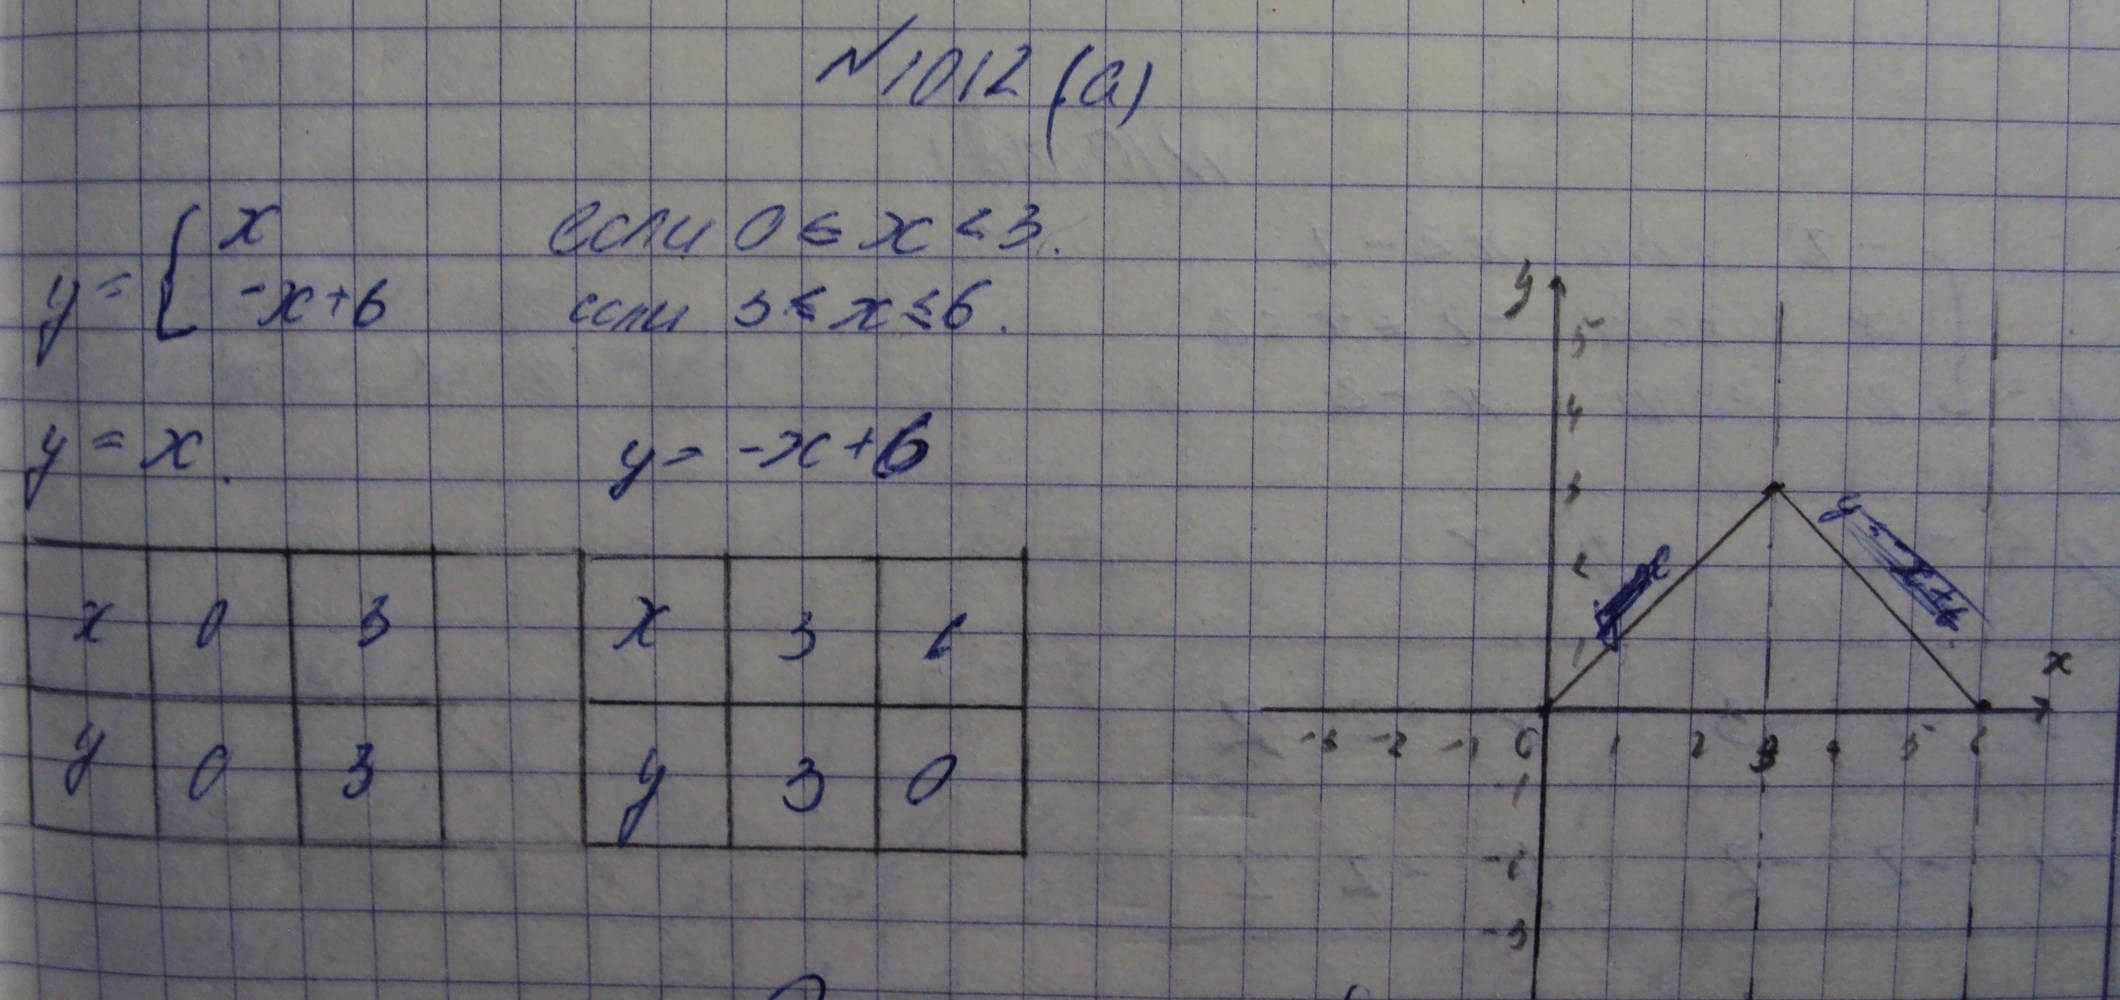 №1012 (а)
y = { x если 0 ≤ x < 3.
-x+6 если 3 ≤ x ≤ 6.
y = x. y = -x+6
x 0 3 x 3 6
y 0 3 y 3 0
y
5
4
3
2
1
x
-3 -2 -1 0 1 2 3 4 5 6
-1
-2
-3
y=-x+6